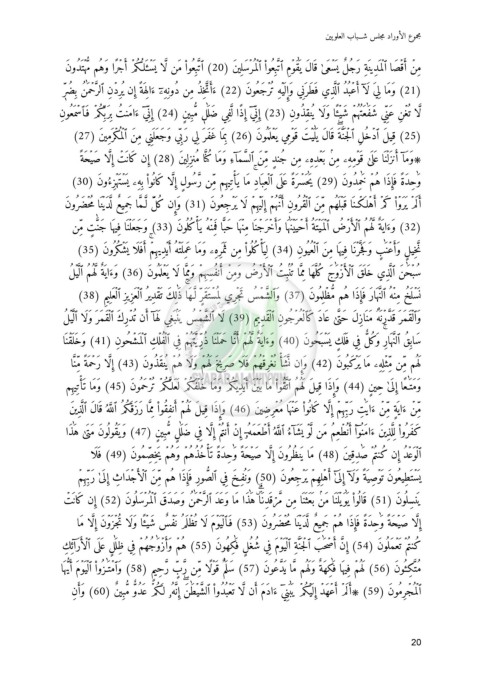 مجموع الأوراد مجلس شباب العلويين
مِنْ أَقْصَا ٱلْمَدِينَةِ رَجُلٌ يَسْعَىٰ قَالَ يَٰقَوْمِ ٱتَّبِعُواْ ٱلْمُرْسَلِينَ (20) ٱتَّبِعُواْ مَن لَّا يَسْـَٔلُكُمْ أَجْرًا وَهُم مُّهْتَدُونَ
(21) وَمَا لِيَ لَآ أَعْبُدُ ٱلَّذِي فَطَرَنِي وَإِلَيْهِ تُرْجَعُونَ (22) ءَأَتَّخِذُ مِن دُونِهِۦٓ ءَالِهَةً إِن يُرِدْنِ ٱلرَّحْمَٰنُ بِضُرٍّ
لَّا تُغْنِ عَنِّي شَفَٰعَتُهُمْ شَيْـًٔا وَلَا يُنقِذُونِ (23) إِنِّيٓ إِذًا لَّفِي ضَلَٰلٍ مُّبِينٍ (24) إِنِّيٓ ءَامَنتُ بِرَبِّكُمْ فَٱسْمَعُونِ
(25) قِيلَ ٱدْخُلِ ٱلْجَنَّةَ قَالَ يَٰلَيْتَ قَوْمِي يَعْلَمُونَ (26) بِمَا غَفَرَ لِي رَبِّي وَجَعَلَنِي مِنَ ٱلْمُكْرَمِينَ (27)
۞وَمَآ أَنزَلْنَا عَلَىٰ قَوْمِهِۦ مِنۢ بَعْدِهِۦ مِن جُندٍ مِّنَ ٱلسَّمَآءِ وَمَا كُنَّا مُنزِلِينَ (28) إِن كَانَتْ إِلَّا صَيْحَةً
وَٰحِدَةً فَإِذَا هُمْ خَٰمِدُونَ (29) يَٰحَسْرَةً عَلَى ٱلْعِبَادِ مَا يَأْتِيهِم مِّن رَّسُولٍ إِلَّا كَانُواْ بِهِۦ يَسْتَهْزِءُونَ (30)
أَلَمْ يَرَوْاْ كَمْ أَهْلَكْنَا قَبْلَهُم مِّنَ ٱلْقُرُونِ أَنَّهُمْ إِلَيْهِمْ لَا يَرْجِعُونَ (31) وَإِن كُلٌّ لَّمَّا جَمِيعٌ لَّدَيْنَا مُحْضَرُونَ
(32) وَءَايَةٌ لَّهُمُ ٱلْأَرْضُ ٱلْمَيْتَةُ أَحْيَيْنَٰهَا وَأَخْرَجْنَا مِنْهَا حَبًّا فَمِنْهُ يَأْكُلُونَ (33) وَجَعَلْنَا فِيهَا جَنَّٰتٍ مِّن
نَّخِيلٍ وَأَعْنَٰبٍ وَفَجَّرْنَا فِيهَا مِنَ ٱلْعُيُونِ (34) لِيَأْكُلُواْ مِن ثَمَرِهِۦ وَمَا عَمِلَتْهُ أَيْدِيهِمْ أَفَلَا يَشْكُرُونَ (35)
سُبْحَٰنَ ٱلَّذِي خَلَقَ ٱلْأَزْوَٰجَ كُلَّهَا مِمَّا تُنۢبِتُ ٱلْأَرْضُ وَمِنْ أَنفُسِهِمْ وَمِمَّا لَا يَعْلَمُونَ (36) وَءَايَةٌ لَّهُمُ ٱلَّيْلُ
نَسْلَخُ مِنْهُ ٱلنَّهَارَ فَإِذَا هُم مُّظْلِمُونَ (37) وَٱلشَّمْسُ تَجْرِي لِمُسْتَقَرٍّ لَّهَا ذَٰلِكَ تَقْدِيرُ ٱلْعَزِيزِ ٱلْعَلِيمِ (38)
وَٱلْقَمَرَ قَدَّرْنَٰهُ مَنَازِلَ حَتَّىٰ عَادَ كَٱلْعُرْجُونِ ٱلْقَدِيمِ (39) لَا ٱلشَّمْسُ يَنۢبَغِي لَهَآ أَن تُدْرِكَ ٱلْقَمَرَ وَلَا ٱلَّيْلُ
سَابِقُ ٱلنَّهَارِ وَكُلٌّ فِي فَلَكٍ يَسْبَحُونَ (40) وَءَايَةٌ لَّهُمْ أَنَّا حَمَلْنَا ذُرِّيَّتَهُمْ فِي ٱلْفُلْكِ ٱلْمَشْحُونِ (41) وَخَلَقْنَا
لَهُم مِّن مِّثْلِهِۦ مَا يَرْكَبُونَ (42) وَإِن نَّشَأْ نُغْرِقْهُمْ فَلَا صَرِيخَ لَهُمْ وَلَا هُمْ يُنقَذُونَ (43) إِلَّا رَحْمَةً مِّنَّا
وَمَتَٰعًا إِلَىٰ حِينٍ (44) وَإِذَا قِيلَ لَهُمُ ٱتَّقُواْ مَا بَيْنَ أَيْدِيكُمْ وَمَا خَلْفَكُمْ لَعَلَّكُمْ تُرْحَمُونَ (45) وَمَا تَأْتِيهِم
مِّنْ ءَايَةٍ مِّنْ ءَايَٰتِ رَبِّهِمْ إِلَّا كَانُواْ عَنْهَا مُعْرِضِينَ (46) وَإِذَا قِيلَ لَهُمْ أَنفِقُواْ مِمَّا رَزَقَكُمُ ٱللَّهُ قَالَ ٱلَّذِينَ
كَفَرُواْ لِلَّذِينَ ءَامَنُوٓاْ أَنُطْعِمُ مَن لَّوْ يَشَآءُ ٱللَّهُ أَطْعَمَهُۥٓ إِنْ أَنتُمْ إِلَّا فِي ضَلَٰلٍ مُّبِينٍ (47) وَيَقُولُونَ مَتَىٰ هَٰذَا
ٱلْوَعْدُ إِن كُنتُمْ صَٰدِقِينَ (48) مَا يَنظُرُونَ إِلَّا صَيْحَةً وَٰحِدَةً تَأْخُذُهُمْ وَهُمْ يَخِصِّمُونَ (49) فَلَا
يَسْتَطِيعُونَ تَوْصِيَةً وَلَآ إِلَىٰٓ أَهْلِهِمْ يَرْجِعُونَ (50) وَنُفِخَ فِي ٱلصُّورِ فَإِذَا هُم مِّنَ ٱلْأَجْدَاثِ إِلَىٰ رَبِّهِمْ
يَنسِلُونَ (51) قَالُواْ يَٰوَيْلَنَا مَنۢ بَعَثَنَا مِن مَّرْقَدِنَا هَٰذَا مَا وَعَدَ ٱلرَّحْمَٰنُ وَصَدَقَ ٱلْمُرْسَلُونَ (52) إِن كَانَتْ
إِلَّا صَيْحَةً وَٰحِدَةً فَإِذَا هُمْ جَمِيعٌ لَّدَيْنَا مُحْضَرُونَ (53) فَٱلْيَوْمَ لَا تُظْلَمُ نَفْسٌ شَيْـًٔا وَلَا تُجْزَوْنَ إِلَّا مَا
كُنتُمْ تَعْمَلُونَ (54) إِنَّ أَصْحَٰبَ ٱلْجَنَّةِ ٱلْيَوْمَ فِي شُغُلٍ فَٰكِهُونَ (55) هُمْ وَأَزْوَٰجُهُمْ فِي ظِلَٰلٍ عَلَى ٱلْأَرَآئِكِ
مُتَّكِـُٔونَ (56) لَهُمْ فِيهَا فَٰكِهَةٌ وَلَهُم مَّا يَدَّعُونَ (57) سَلَٰمٌ قَوْلًا مِّن رَّبٍّ رَّحِيمٍ (58) وَٱمْتَٰزُواْ ٱلْيَوْمَ أَيُّهَا
ٱلْمُجْرِمُونَ (59) ۞أَلَمْ أَعْهَدْ إِلَيْكُمْ يَٰبَنِيٓ ءَادَمَ أَن لَّا تَعْبُدُواْ ٱلشَّيْطَٰنَ إِنَّهُۥ لَكُمْ عَدُوٌّ مُّبِينٌ (60) وَأَنِ
20